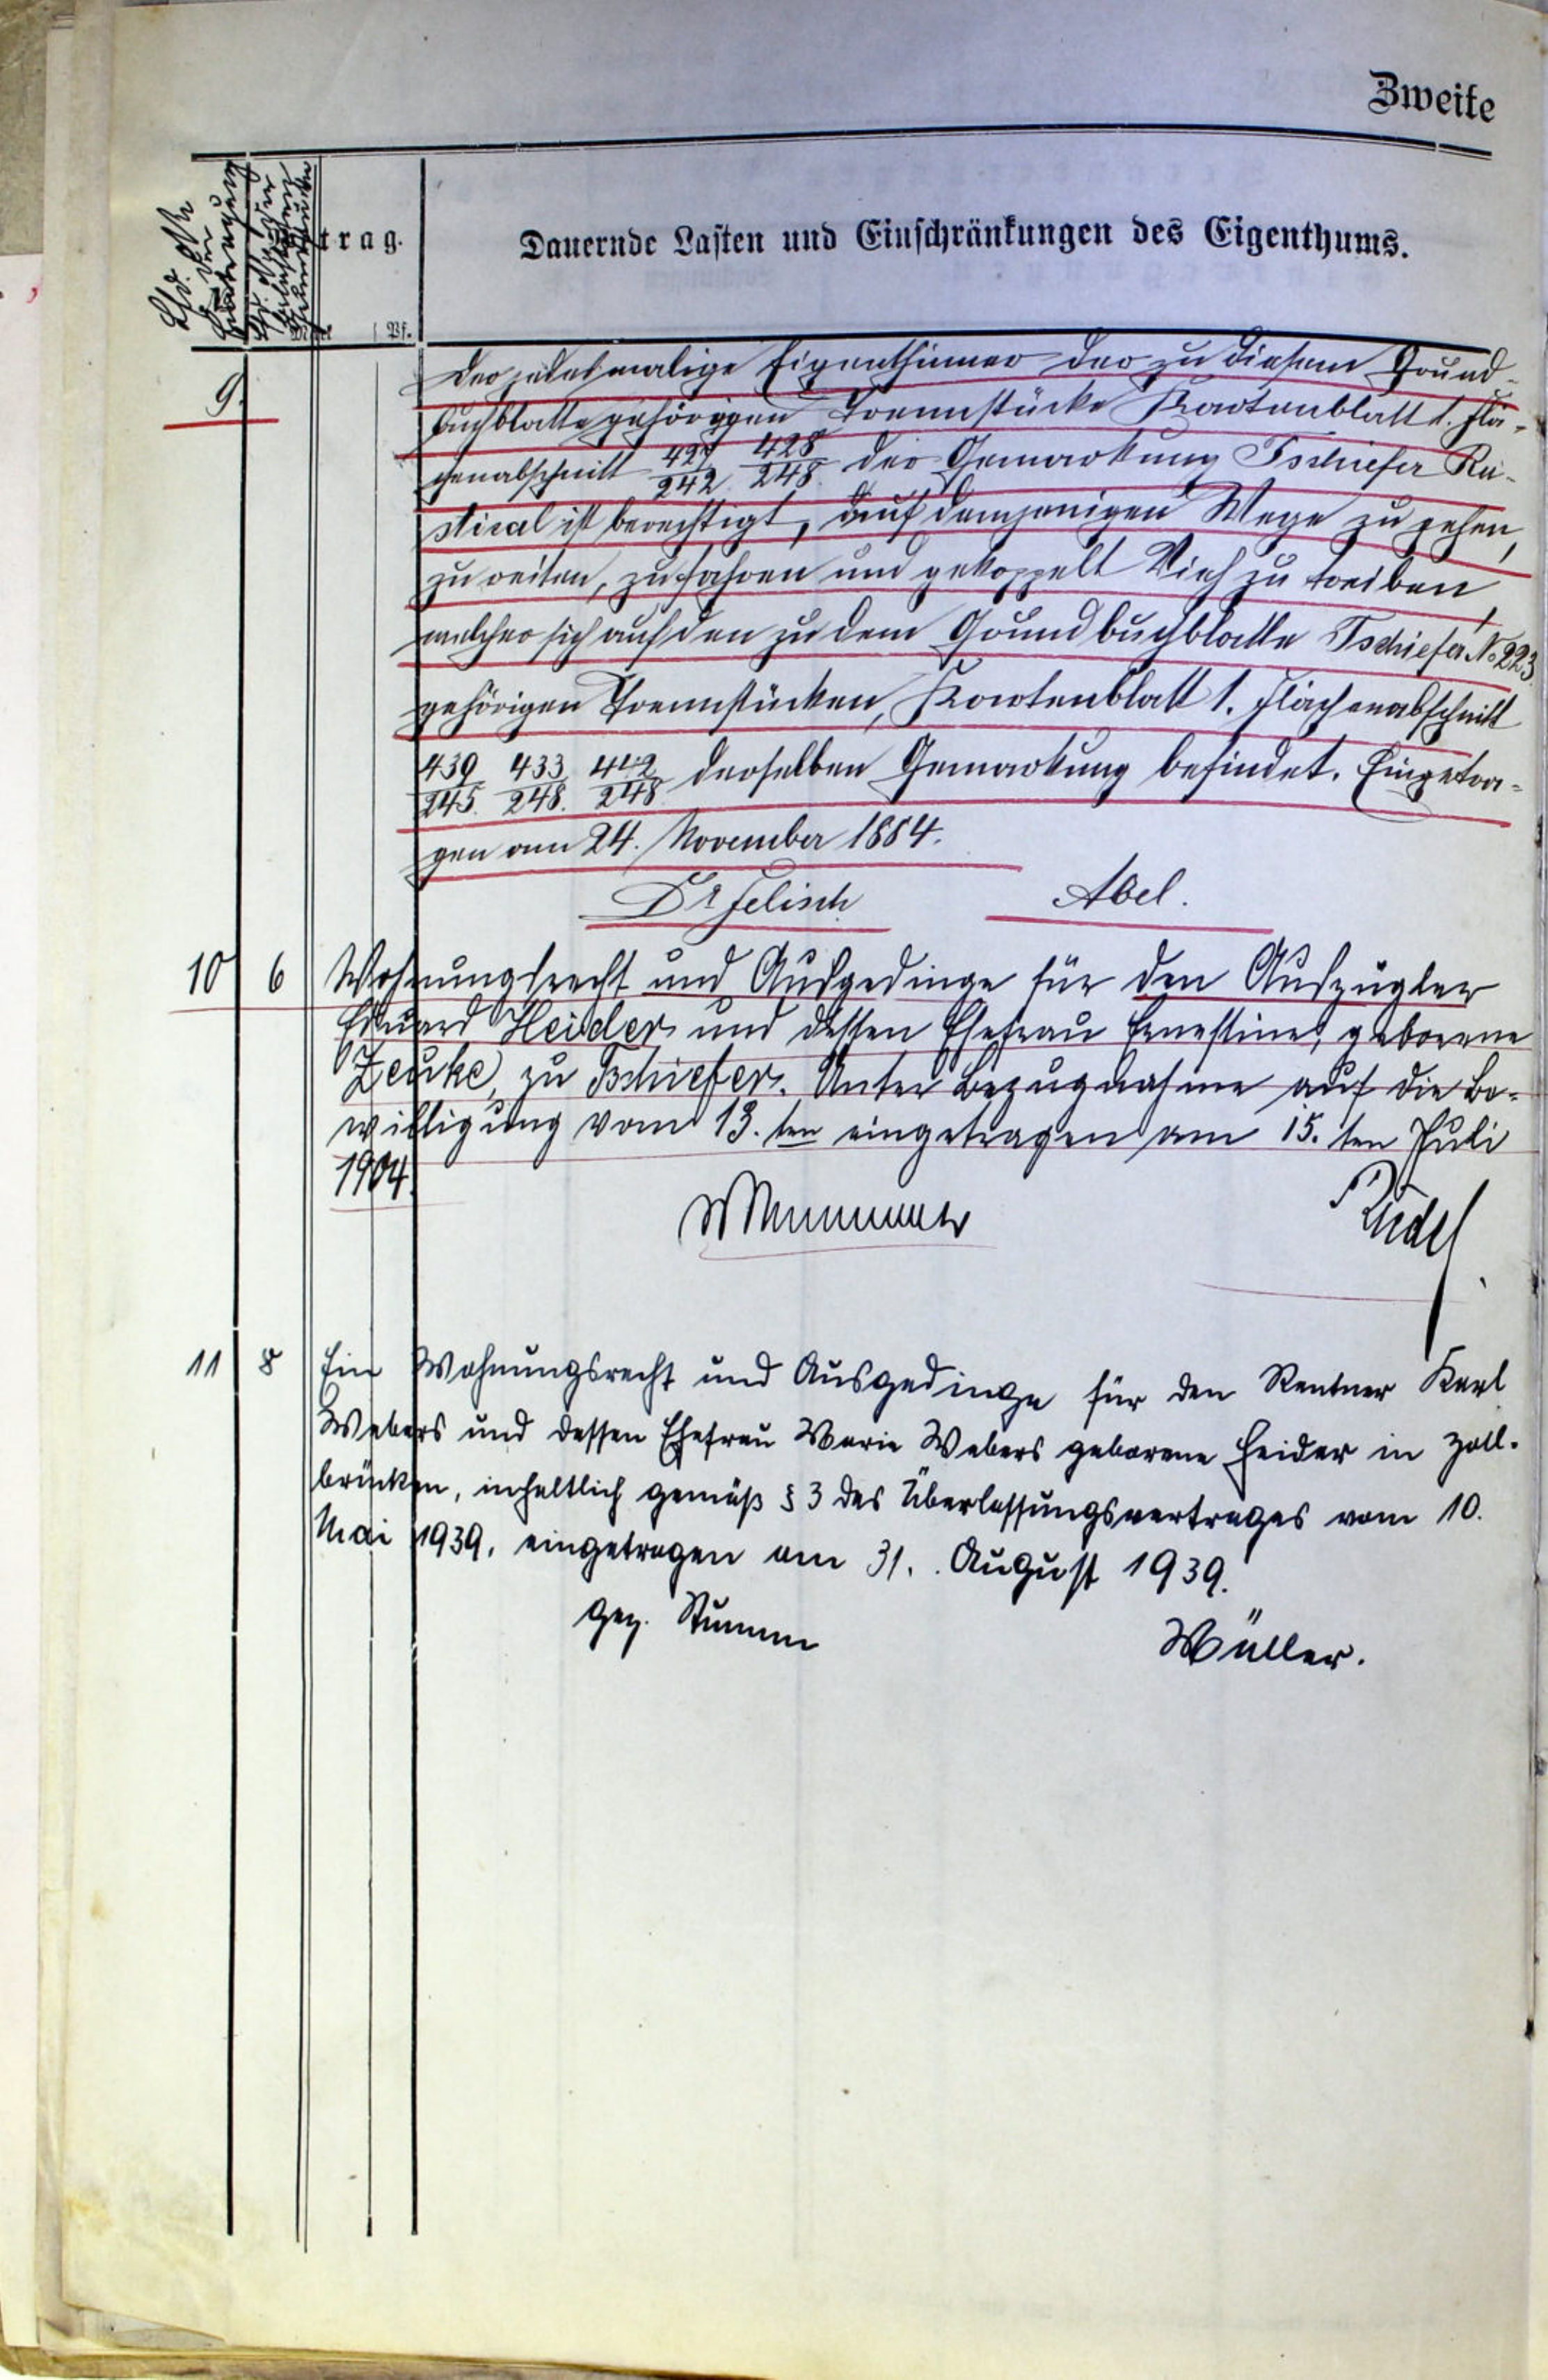 Zweite
Lfd. No. der Eintragung
trag.
Mark Pf.
Dauernde Lasten und Einschränkungen des Eigenthums.
9.
Der jedesmalige Eigenthümer der zu diesem Grund-
buchblatte gehörigen Trennstücke Kartenblatt 1. Flä-
chenabschnitt 427/242. 428/248. der Gemarkung Tschiefer Ru-
stical ist berechtigt, auf demjenigen Wege zu gehen,
zu reiten, zu fahren und gekoppelt Vieh zu treiben,
welcher sich auf den zu dem Grundbuchblatte Tschiefer No 223.
gehörigen Trennstücken, Kartenblatt 1. Flächenabschnitt
439/245. 433/248. 442/248 derselben Gemarkung befindet. Eingetra-
gen am 24. November 1884.
Dr Felisch Abel.
10 6 Wohnungsrecht und Ausgedinge für den Auszügler
Eduard Heider und dessen Ehefrau Ernestine, geborene
Zeuke, zu Tschiefer. Unter Bezugnahme auf die Be-
willigung vom 13. ten eingetragen am 15. ten Juli
1904.
11 8 Ein Wohnungsrecht und Ausgedinge für den Rentner Karl
Webers und dessen Ehefrau Marie Webers geborene Heider in Zoll-
brücken, inhaltlich gemäß § 3 des Überlassungsvertrages vom 10.
Mai 1939, eingetragen am 31. August 1939.
gez. Stumm Müller.